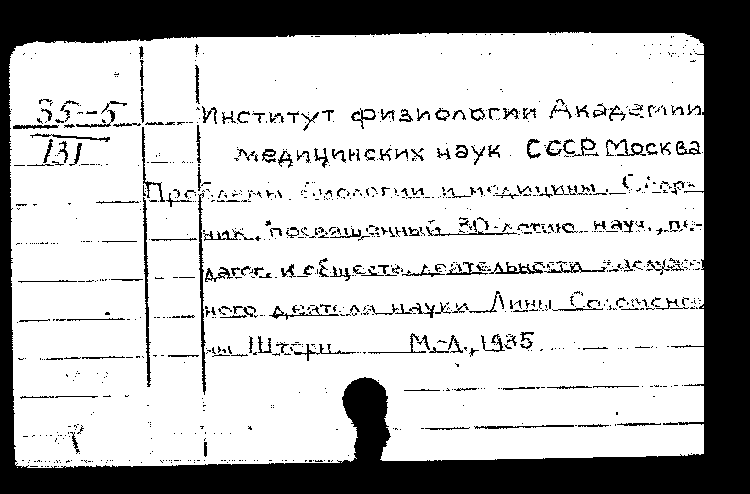 35-5
131
Институт физиологии Академии
медицинских наук СССР. Москва
Проблемы биологии и медицины. Сбор-
ник, посвященный 30-летию науч., пе-
дагог. и обществ. деятельности заслужен
ного деятеля науки Лины Соломонов
ны Штерн. М.-Л., 1935